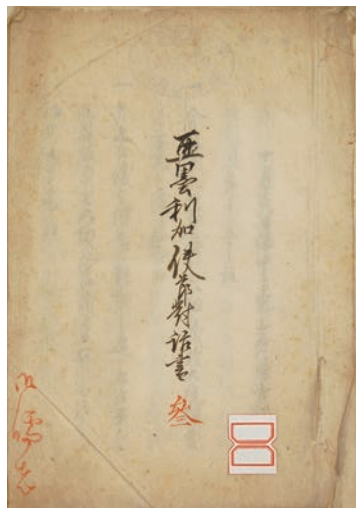 亞墨利加使節對話書 叅